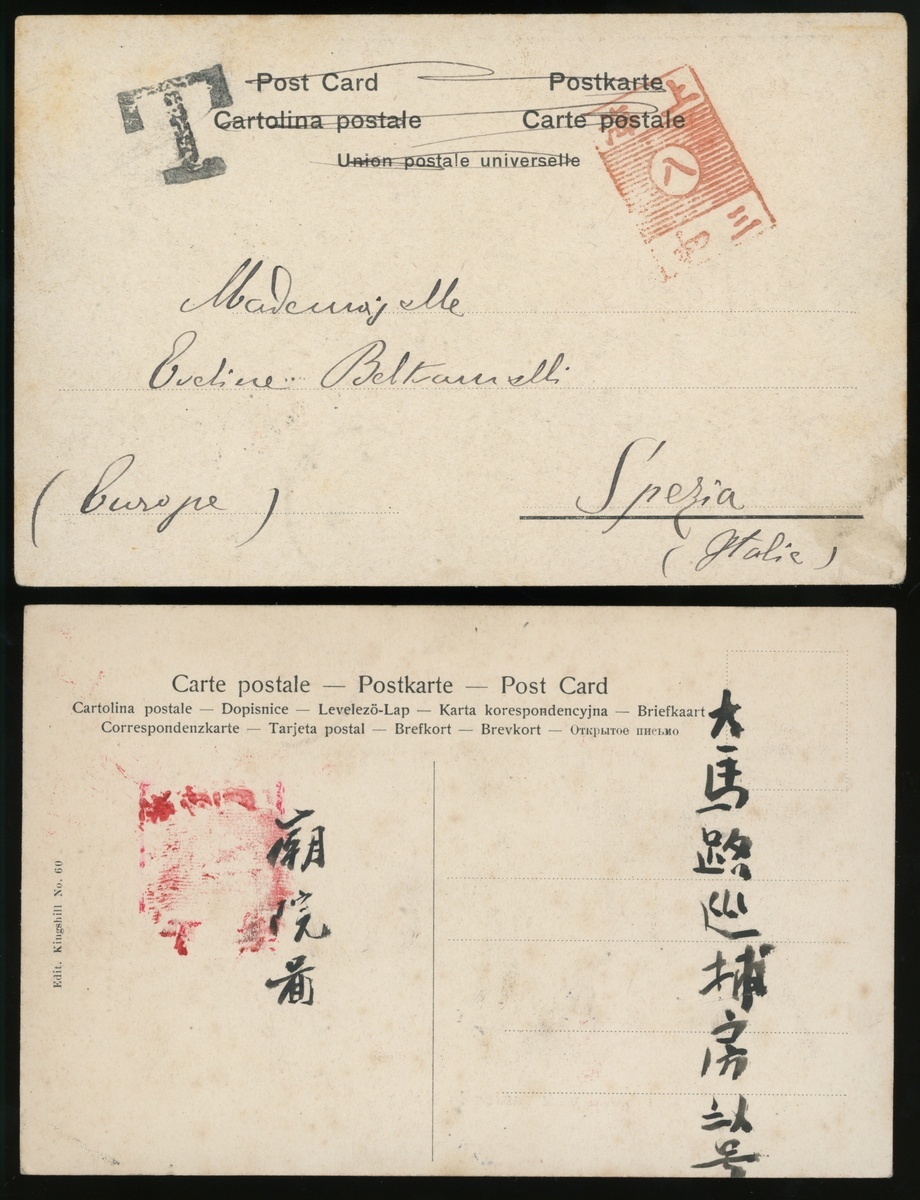 T
Post Card Postkarte
Cartolina postale Carte postale
Union postale universelle
上海
八
三
Mademoiselle
Eveline Beltramelli
(Europe)
Spezia
(Italie)
Carte postale — Postkarte — Post Card
Cartolina postale — Dopisnice — Levelezö-Lap — Karta korespondencyjna — Briefkaart
Correspondenzkarte — Tarjeta postal — Brefkort — Brevkort — Открытое письмо
Edit. Kingshill No. 60
大馬路巡捕房
号
院